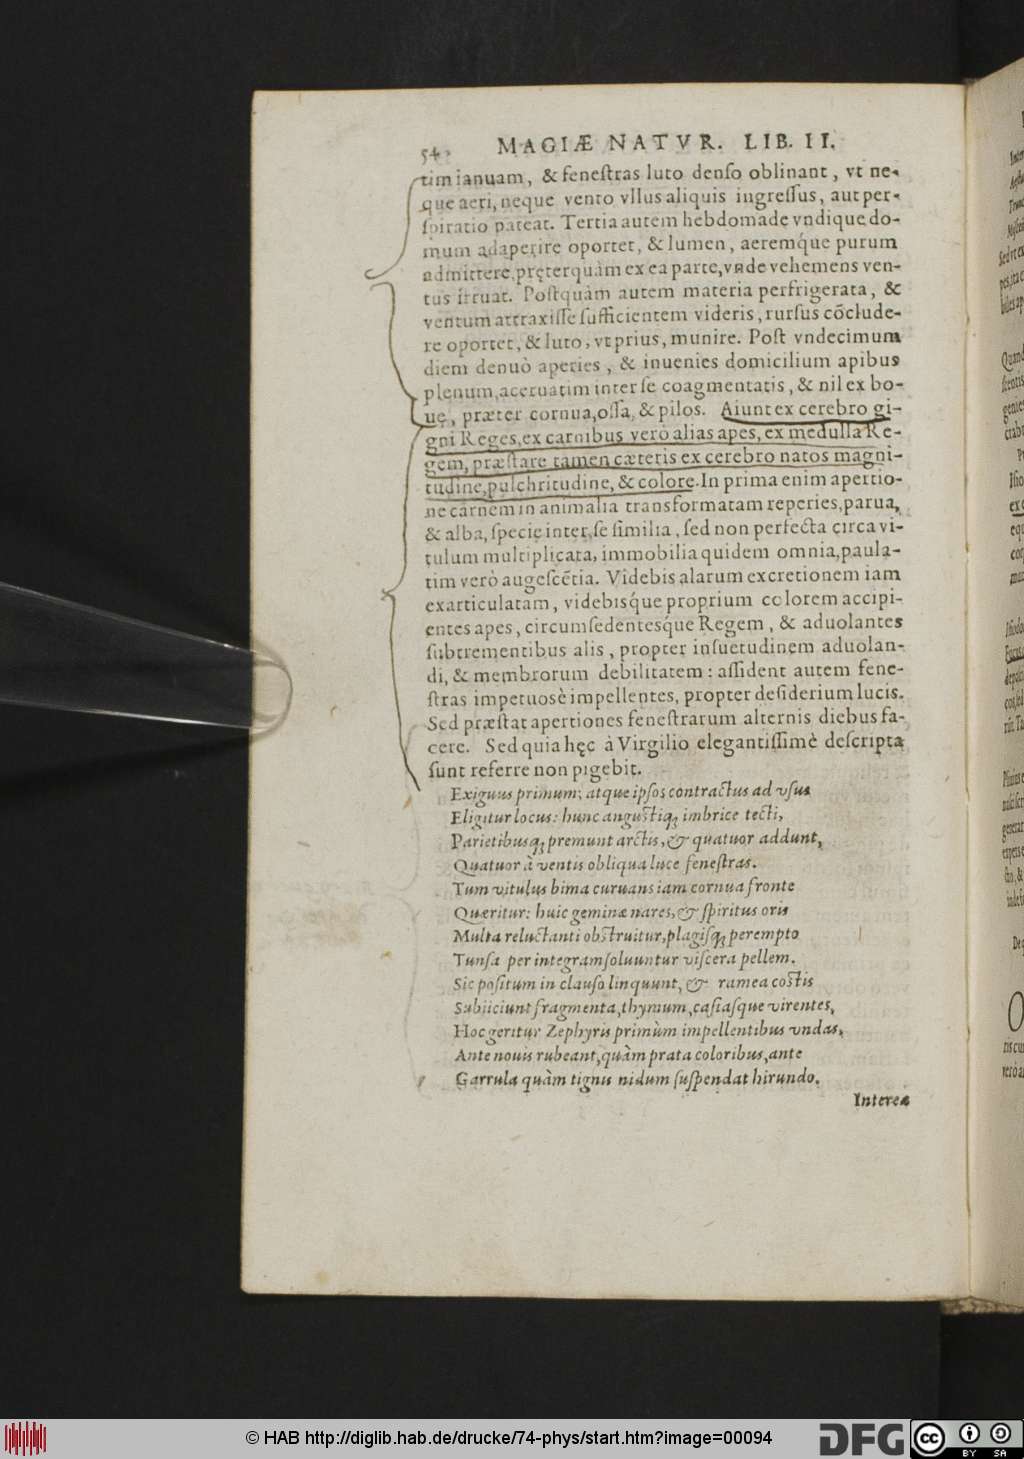 54
MAGIÆ NATVR. LIB. II.
tim ianuam, & feneſtras luto denſo oblinant, vt ne-
que aeri, neque vento vllus aliquis ingreſſus, aut per-
ſpiratio pateat. Tertia autem hebdomade vndique do-
mum adaperire oportet, & lumen, aeremq́ue purum
admittere, pręterquàm ex ea parte, vnde vehemens ven-
tus irruat. Poſtquàm autem materia perfrigerata, &
ventum attraxiſſe ſufficientem videris, rurſus cõclude-
re oportet, & luto, vt prius, munire. Poſt vndecimum
diem denuò aperies, & inuenies domicilium apibus
plenum, aceruatim inter ſe coagmentatis, & nil ex bo-
ue, præter cornua, oſſa, & pilos. Aiunt ex cerebro gi-
gni Reges, ex carnibus verò alias apes, ex medulla Re-
gem, præſtare tamen cæteris ex cerebro natos magni-
tudine, pulchritudine, & colore. In prima enim apertio-
ne carnem in animalia transformatam reperies, parua,
& alba, ſpecie inter ſe ſimilia, ſed non perfecta circa vi-
tulum multiplicata, immobilia quidem omnia, paula-
tim verò augeſcẽtia. Videbis alarum excretionem iam
exarticulatam, videbisq́ue proprium colorem accipi-
entes apes, circumſedentesq́ue Regem, & aduolantes
ſubtrementibus alis, propter inſuetudinem aduolan-
di, & membrorum debilitatem: aſſident autem fene-
ſtras impetuosè impellentes, propter deſiderium lucis.
Sed præſtat apertiones feneſtrarum alternis diebus fa-
cere. Sed quia hęc à Virgilio elegantiſſimè deſcripta
ſunt referre non pigebit.
Exiguus primum, atque ipſos contractus ad vſus
Eligitur locus: hunc anguſtiq; imbrice tecti,
Parietibusq; premunt arctis, & quatuor addunt,
Quatuor à ventis obliqua luce feneſtras.
Tum vitulus bima curuans iam cornua fronte
Quæritur: huic geminæ nares, & ſpiritus oris
Multa reluctanti obſtruitur, plagiſq; perempto
Tunſa per integram ſoluuntur viſcera pellem.
Sic poſitum in clauſo linquunt, & ramea coſtis
Subiiciunt fragmenta, thymum, caſiaſque virentes,
Hoc geritur Zephyris primùm impellentibus vndas,
Ante nouis rubeant, quàm prata coloribus, ante
Garrula quàm tignis nidum ſuſpendat hirundo.
Interea
© HAB http://diglib.hab.de/drucke/74-phys/start.htm?image=00094
DFG
cc BY SA